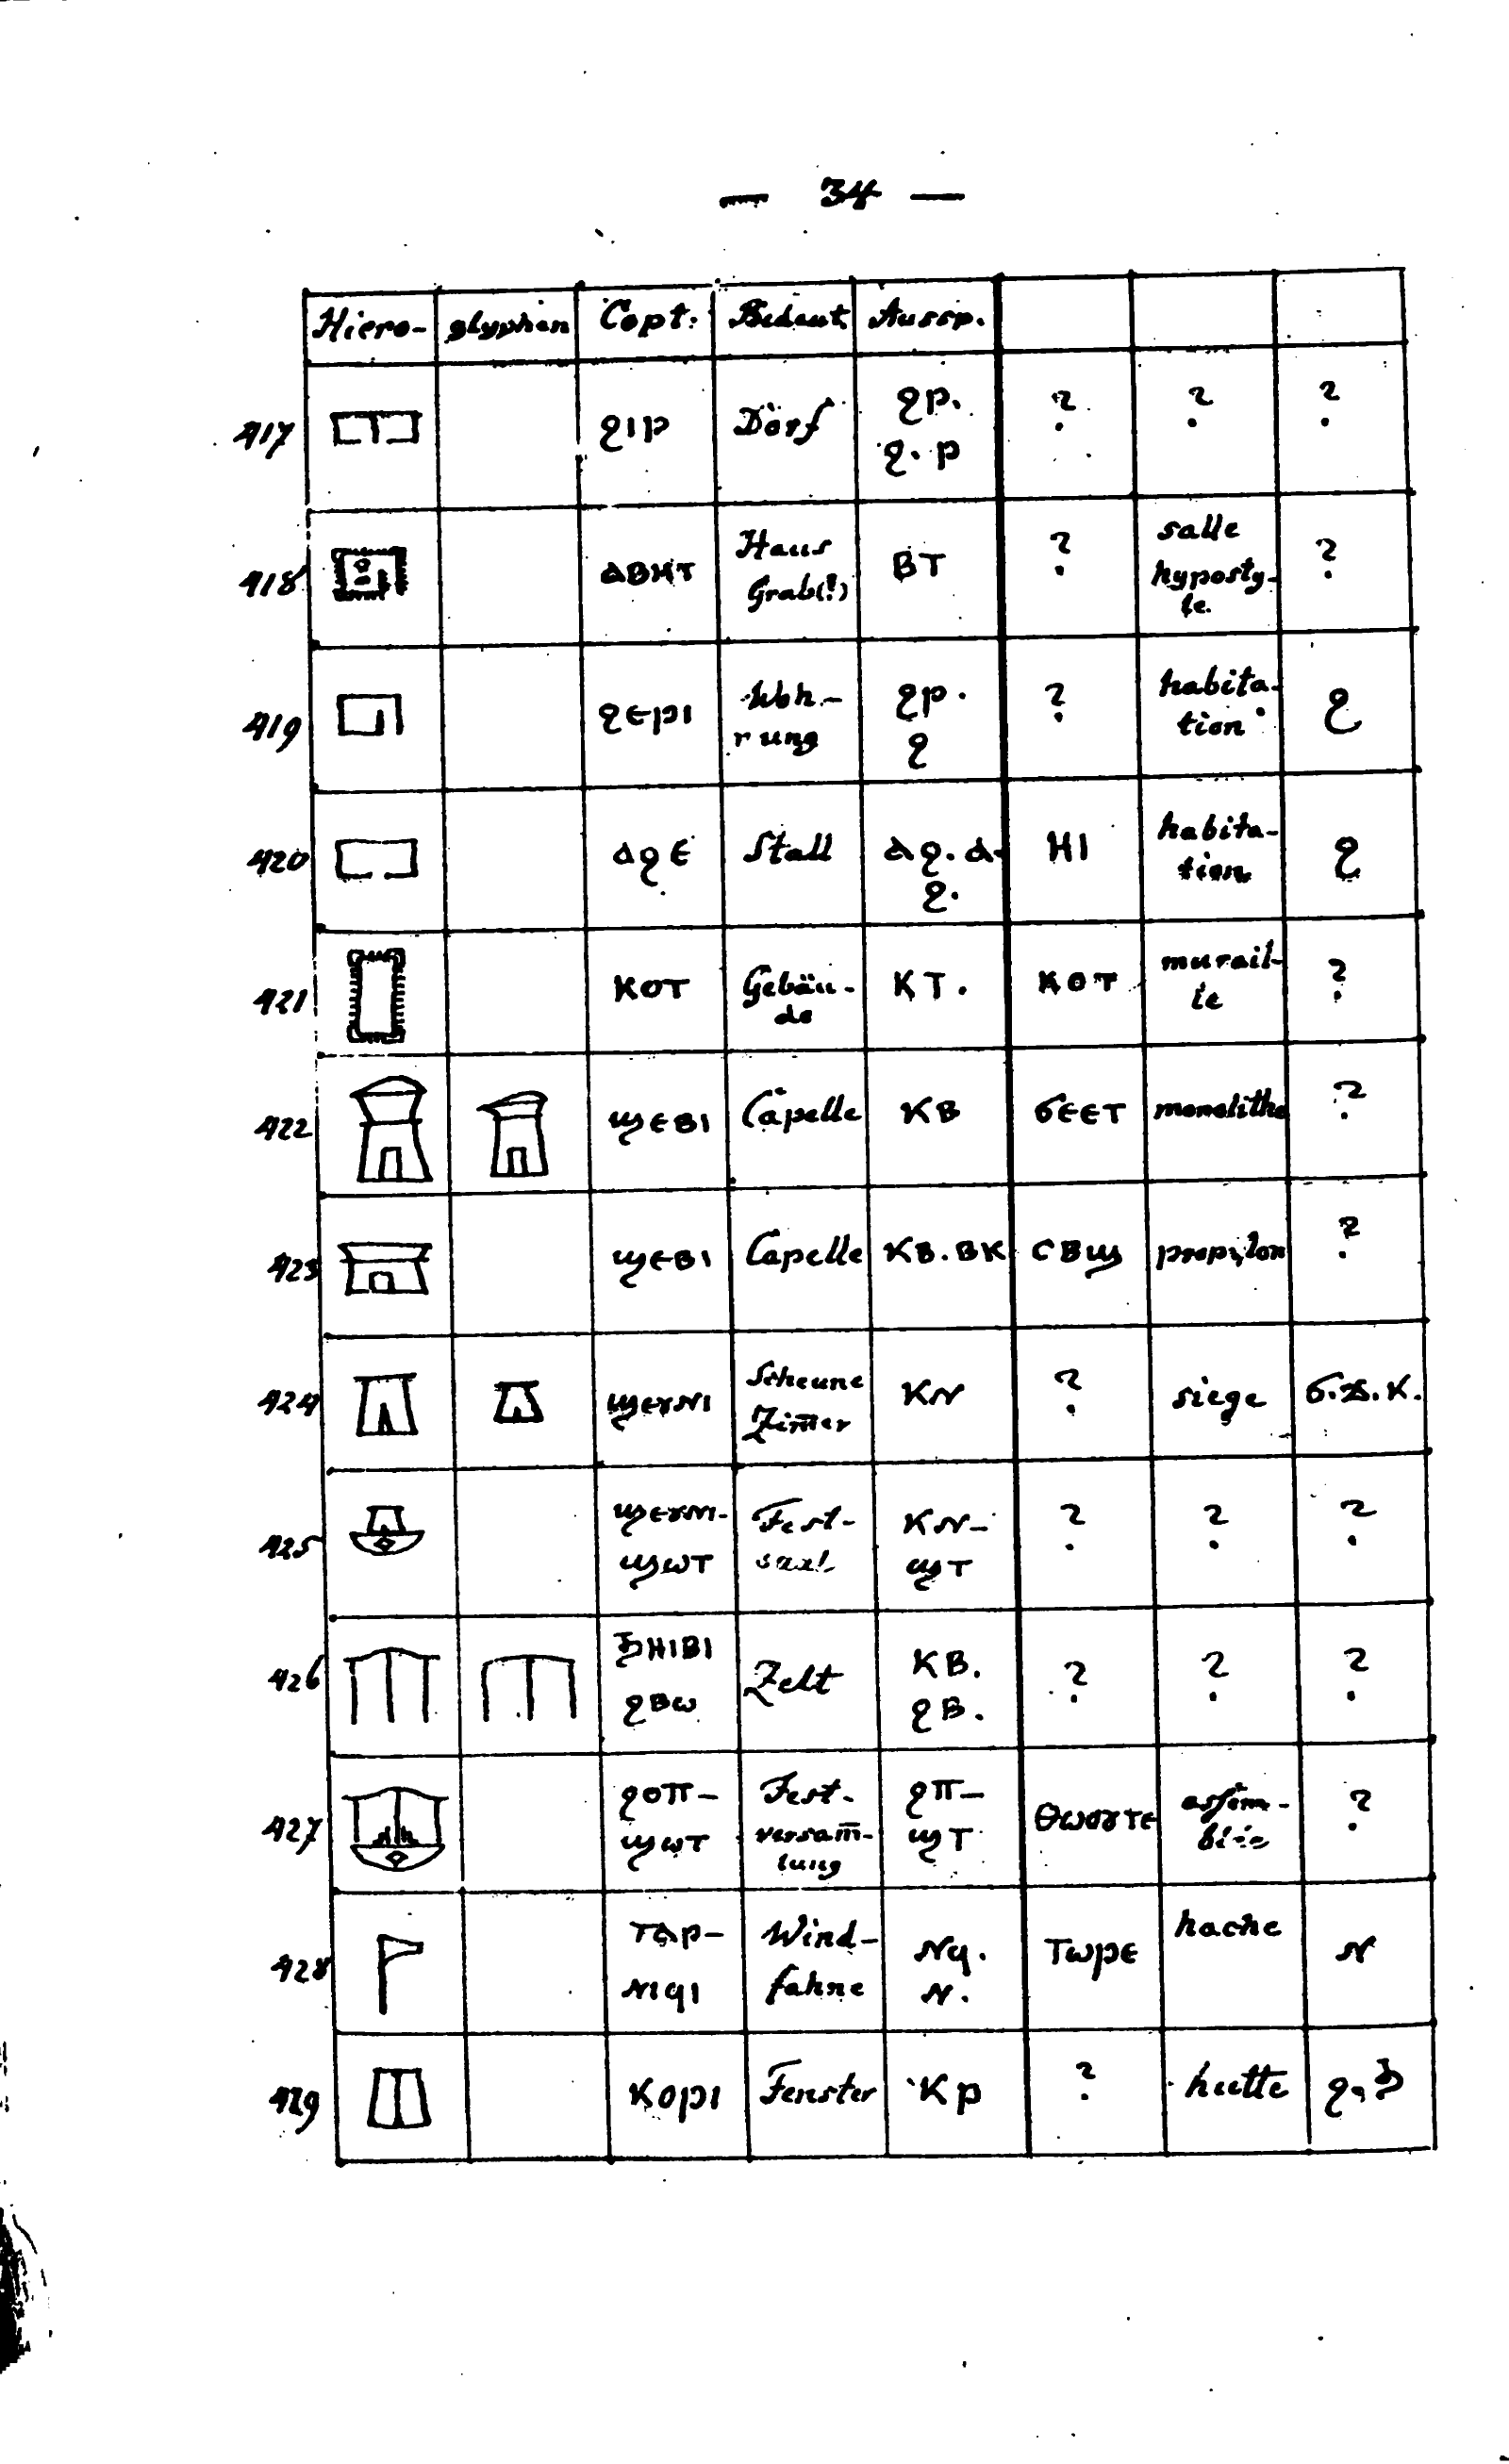 — 34 —
Hiero- glyphen Copt. Bedeut. Aussp.
417 ϩιρ Dorf ϩρ. ϩ.ρ ? ? ?
418 ⲁⲃⲏⲧ Haus Grab(!) ⲃⲧ ? salle hyposty-le. ?
419 ϩⲉⲣⲓ Woh-nung ϩⲣ. ϩ ? habita-tion ϩ
420 ⲁϩⲉ Stall ⲁϩ.ⲁ.ϩ. ⲏⲓ habita-tion ϩ
421 ⲕⲟⲧ Gebäu-de ⲕⲧ. ⲕⲟⲧ murail-le ?
422 ϣⲉⲃⲓ Capelle ⲕⲃ ϭⲉⲉⲧ monolithe ?
423 ϣⲉⲃⲓ Capelle ⲕⲃ.ⲃⲕ ⲥⲃϣ propylon ?
424 ϣⲉⲩⲛⲓ Scheune Zim̄er ⲕⲛ ? siege ϭ.ϫ.ⲕ.
425 ϣⲉⲩⲛⲓ-ϣⲱⲧ Fest-saal ⲕⲛ-ϣⲧ ? ? ?
426 ϧⲏⲓⲃⲓ ϩⲃⲱ Zelt ⲕⲃ. ϩⲃ. ? ? ?
427 ϩⲟⲡ-ϣⲱⲧ Fest-versam̄-lung ϩⲡ-ϣⲧ ⲑⲱⲟⲩⲧⲉ assem-blée ?
428 ⲧⲁⲣ-ⲛⲓϥⲓ Wind-fahne ⲛϥ. ⲛ. ⲧⲱⲣⲉ hache ⲛ
429 ⲕⲟⲣⲓ Fenster ⲕⲣ ? hutte ϩ,ϧ